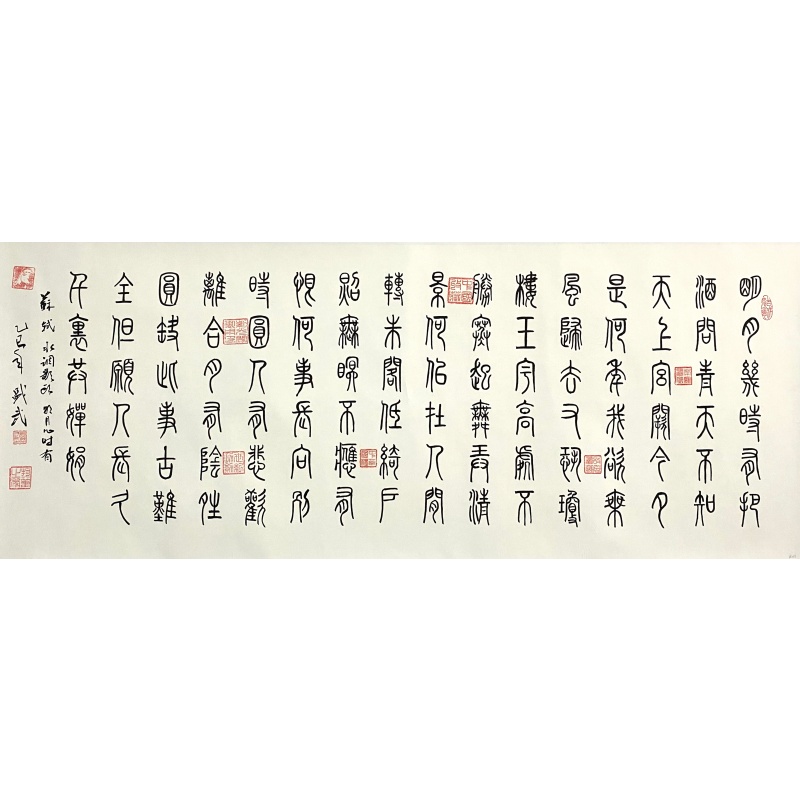 明月幾時有把
酒問青天不知
天上宮闕今夕
是何年我欲乘
風歸去又恐瓊
樓玉宇高處不
勝寒起舞弄清
景何似在人間
轉朱閣低綺戶
照無眠不應有
恨何事長向別
時圓人有悲歡
離合月有陰晴
圓缺此事古難
全但願人長久
千裏共嬋娟
蘇軾水調歌頭明月幾時有
乙巳年